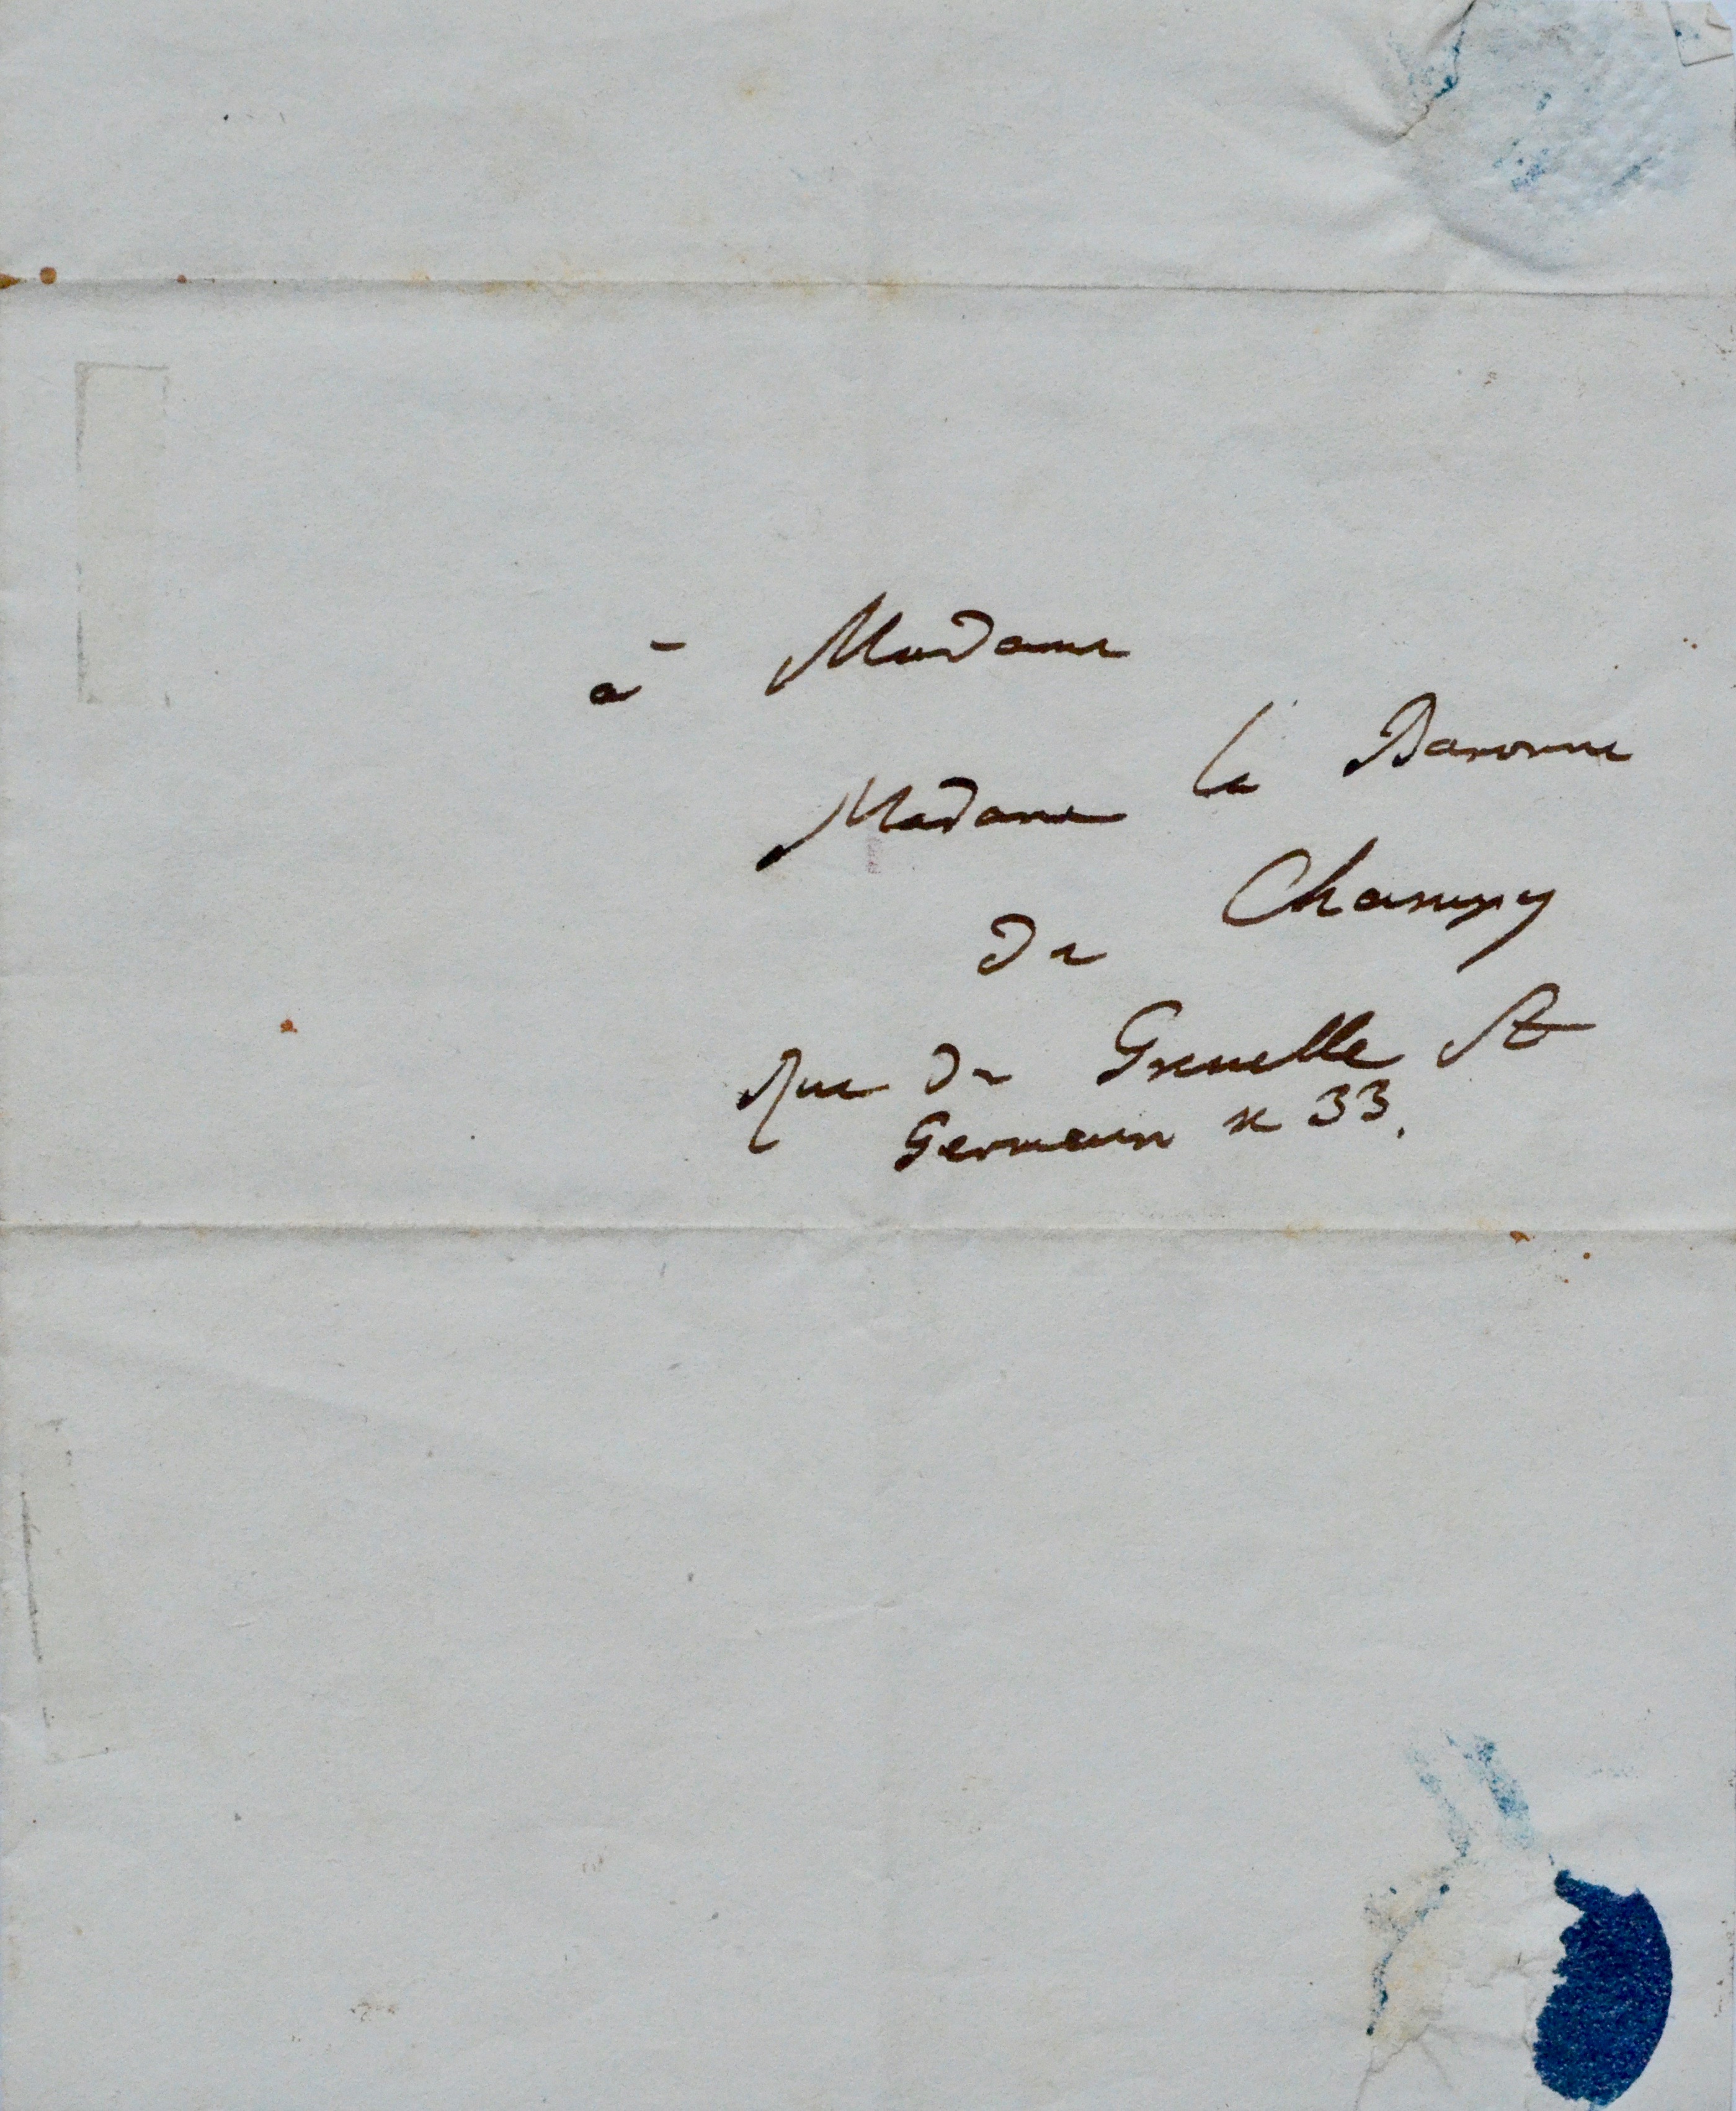 à Madame
Madame la Baronne
de Champy
Rue de Grenelle St
Germain n 33.